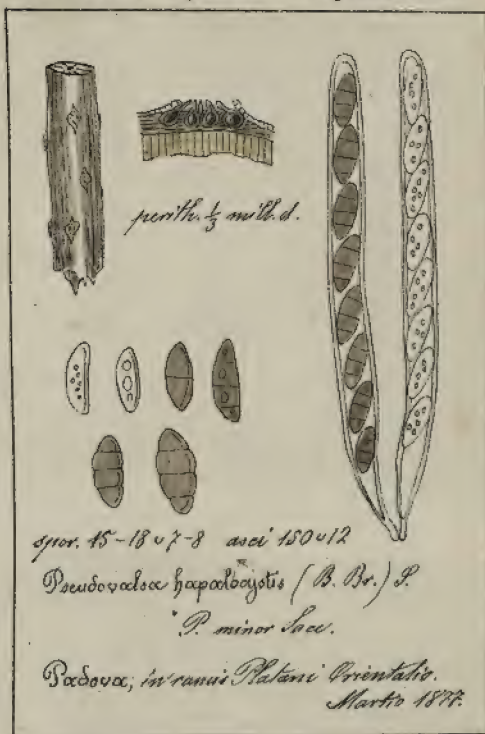 perith. ⅓ mill. d.
spor. 15-18 v 7-8 asci 150 v 12
Pseudovalsa hapalocystis (B. Br.) S.
* P. minor Sacc.
Padova, in ramis Platani Orientalis.
Martio 1877.